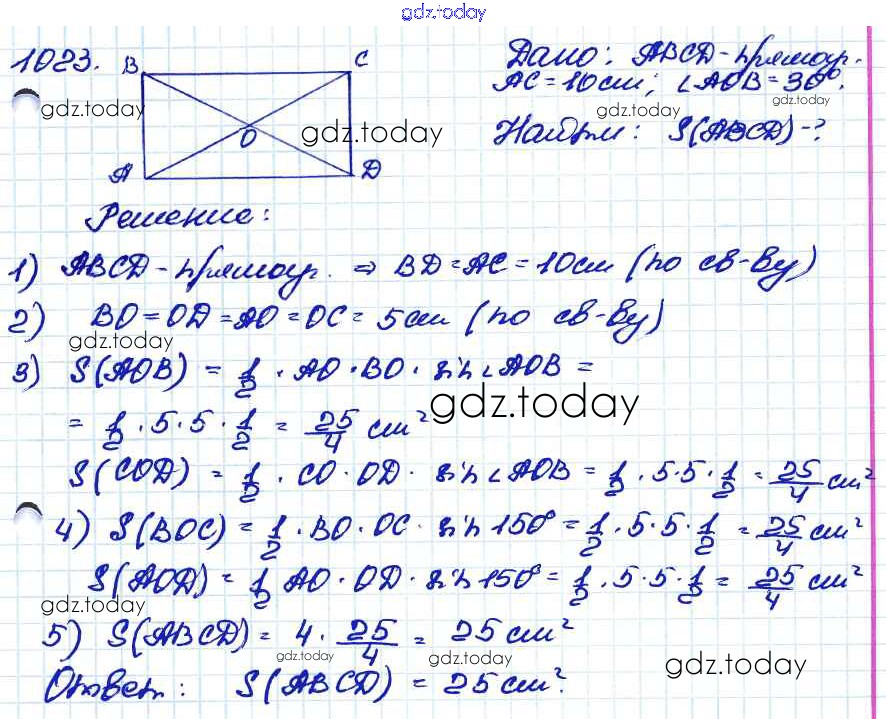 gdz.today
1023. B C Дано: ABCD - прямоуг.
AC = 10 см; ∠AOB = 30°.
gdz.today gdz.today gdz.today
O Найти: S(ABCD) - ?
A D
Решение:
1) ABCD - прямоуг. ⇒ BD = AC = 10 см (по св-ву)
2) BO = OD = AO = OC = 5 см (по св-ву)
gdz.today
3) S(AOB) = 1/2 · AO · BO · sin ∠AOB =
gdz.today
= 1/2 · 5 · 5 · 1/2 = 25/4 см²
S(COD) = 1/2 · CO · OD · sin ∠AOB = 1/2 · 5 · 5 · 1/2 = 25/4 см²
4) S(BOC) = 1/2 · BO · OC · sin 150° = 1/2 · 5 · 5 · 1/2 = 25/4 см²
S(AOD) = 1/2 AO · OD · sin 150° = 1/2 · 5 · 5 · 1/2 = 25/4 см²
gdz.today
5) S(ABCD) = 4 · 25/4 = 25 см²
gdz.today gdz.today gdz.today
Ответ: S(ABCD) = 25 см².